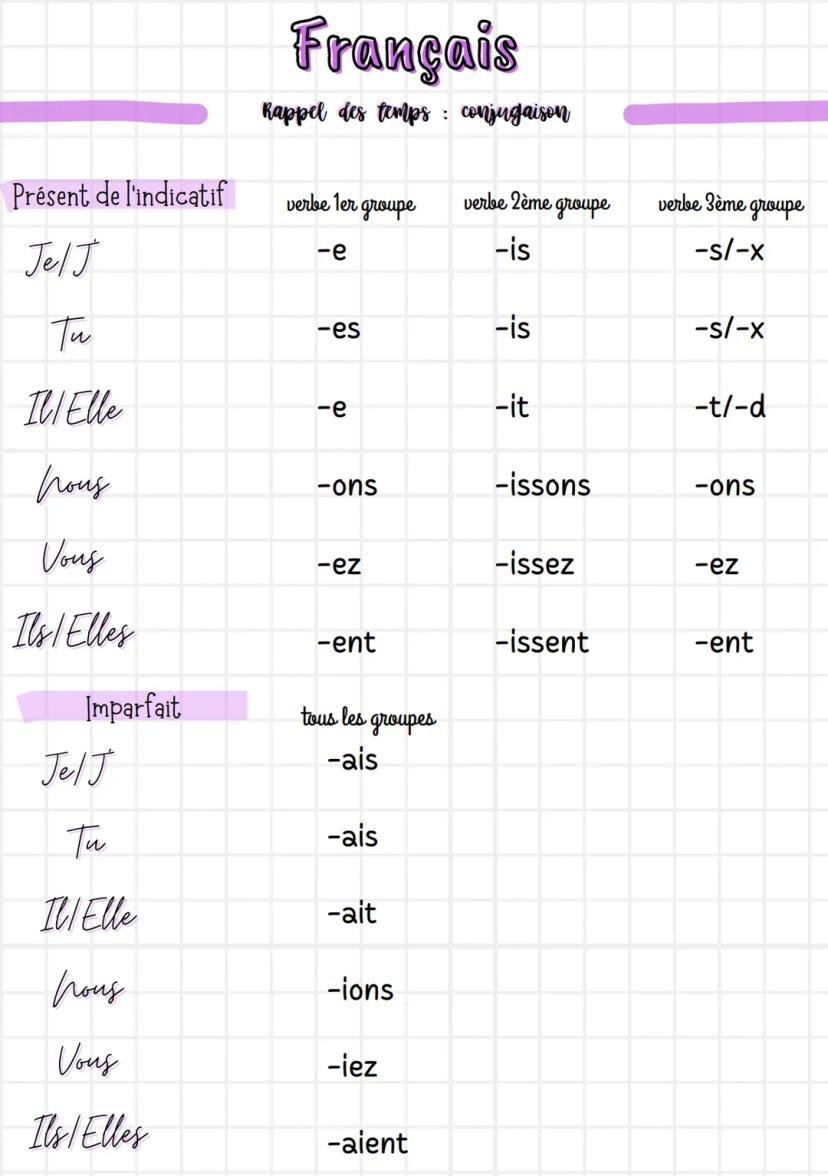 Français
Rappel des temps : conjugaison
Présent de l'indicatif verbe 1er groupe verbe 2ème groupe verbe 3ème groupe
Je/J' -e -is -s/-x
Tu -es -is -s/-x
Il/Elle -e -it -t/-d
Nous -ons -issons -ons
Vous -ez -issez -ez
Ils/Elles -ent -issent -ent
Imparfait tous les groupes
Je/J' -ais
Tu -ais
Il/Elle -ait
Nous -ions
Vous -iez
Ils/Elles -aient